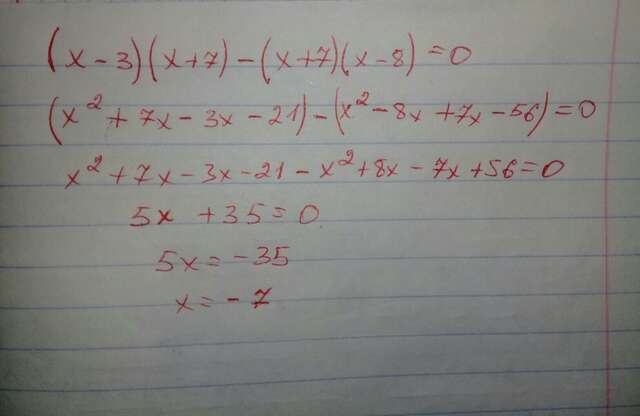 (x-3)(x+7)-(x+7)(x-8)=0
(x²+7x-3x-21)-(x²-8x+7x-56)=0
x²+7x-3x-21-x²+8x-7x+56=0
5x+35=0
5x=-35
x=-7